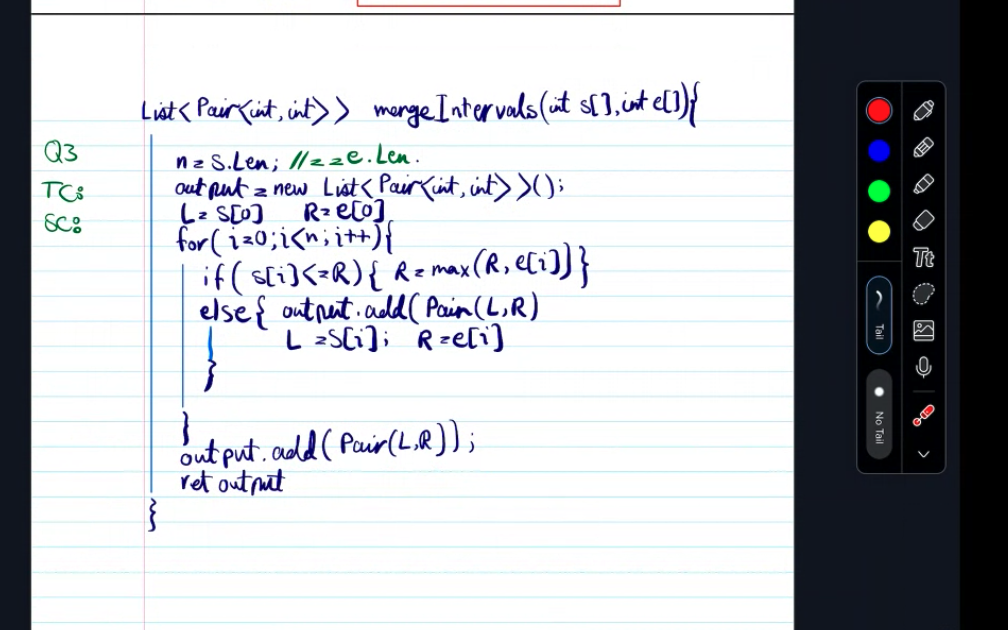 List<Pair<int,int>> mergeIntervals(int s[],int e[]){
Q3
n = s.Len; //==e.Len.
TC:
output = new List<Pair<int,int>>();
SC:
L= S[0] R= e[0]
for(i=0;i<n;i++){
if( s[i]<=R){ R=max(R,e[i])}
else{ output.add(Pair(L,R)
L =S[i]; R=e[i]
}
}
output.add(Pair(L,R));
ret output
}
Tt
Tail
No Tail